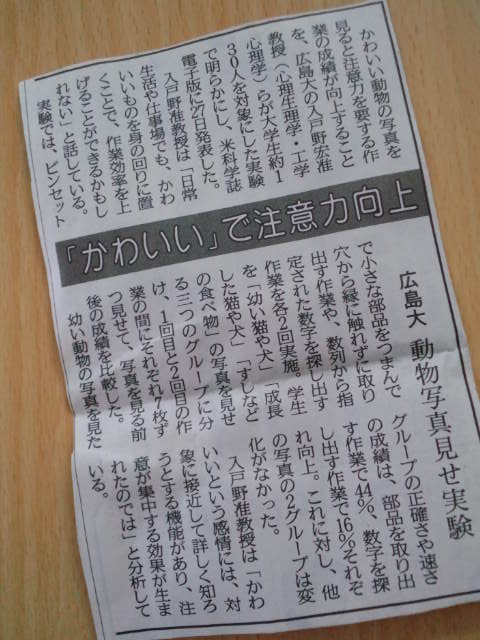 「かわいい」で注意力向上
広島大 動物写真見せ実験
かわいい動物の写真を
見ると注意力を要する作
業の成績が向上すること
を、広島大の入戸野宏准
教授(心理生理学・工学
心理学)らが大学生約1
30人を対象にした実験
で明らかにし、米科学誌
電子版に27日発表した。
入戸野准教授は「日常
生活や仕事場でも、かわ
いいものを身の回りに置
くことで、作業効率を上
げることができるかもし
れない」と話している。
実験では、ピンセット
で小さな部品をつまんで
穴から縁に触れずに取り
出す作業や、数列から指
定された数字を探し出す
作業を各2回実施。学生
を「幼い猫や犬」「成長
した猫や犬」「すしなど
の食べ物」の写真を見せ
る三つのグループに分
け、1回目と2回目の作
業の間にそれぞれ7枚ず
つ見せて、写真を見る前
後の成績を比較した。
幼い動物の写真を見た
グループの正確さや速さ
の成績は、部品を取り出
す作業で44%、数字を探
し出す作業で16%それぞ
れ向上。これに対し、他
の写真の2グループは変
化がなかった。
入戸野准教授は「かわ
いいという感情には、対
象に接近して詳しく知ろ
うとする機能があり、注
意が集中する効果が生ま
れたのでは」と分析して
いる。